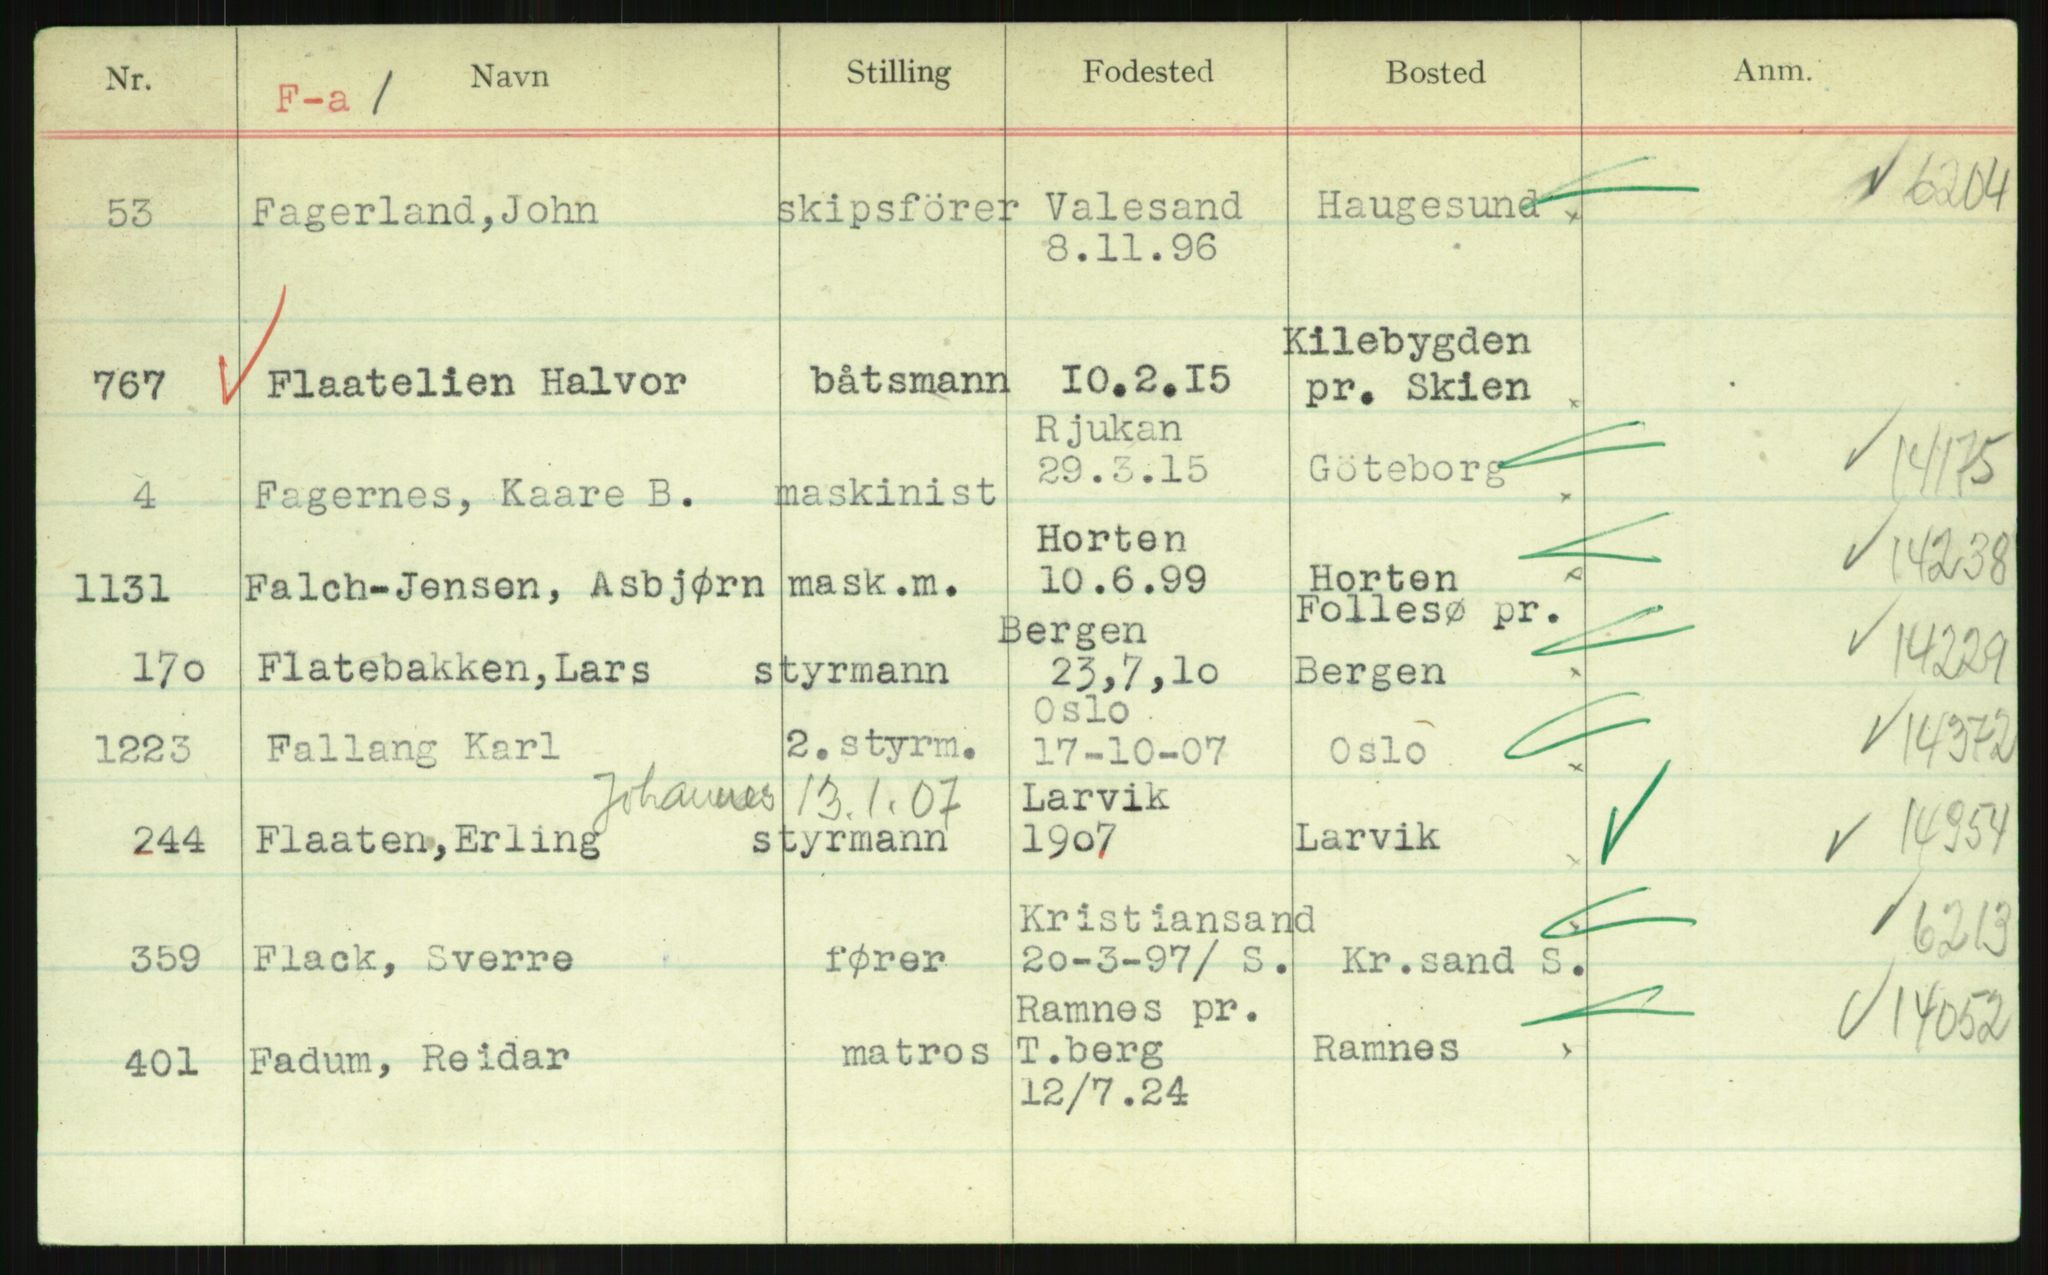 Nr. Navn Stilling Fodested Bosted Anm.
F-a /
53 Fagerland,John skipsförer Valesand Haugesund x ✓ 6204
8.11.96
Kilebygden
767 ✓ Flaatelien Halvor båtsmann 10.2.15 pr. Skien x
Rjukan
29.3.15 Göteborg ✓ 14175
4 Fagernes, Kaare B. maskinist x
Horten ✓ 14238
1131 Falch-Jensen, Asbjørn mask.m. 10.6.99 Horten x
Bergen Follesø pr.
17o Flatebakken,Lars styrmann 23,7,lo Bergen x ✓ 14229
Oslo
1223 Fallang Karl 2.styrm. 17-10-07 Oslo x ✓ 14372
Johannes 13.1.07 Larvik
244 Flaaten,Erling styrmann 19o7 Larvik x ✓ ✓ 14954
Kristiansand x ✓ 6213
359 Flack, Sverre fører 2o-3-97/ S. Kr.sand S.
Ramnes pr. ✓ 14052
401 Fadum, Reidar matros T.berg Ramnes x
12/7.24